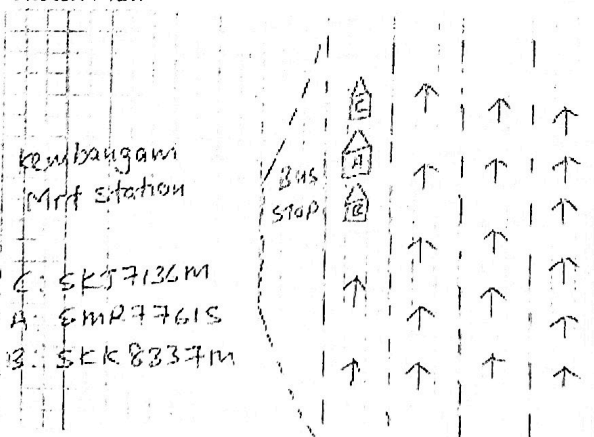 Kembangam
Mrt Station
Bus
Stop
C
A
B
C: SKJ7136M
A: SMR7761S
B: SKK8337M